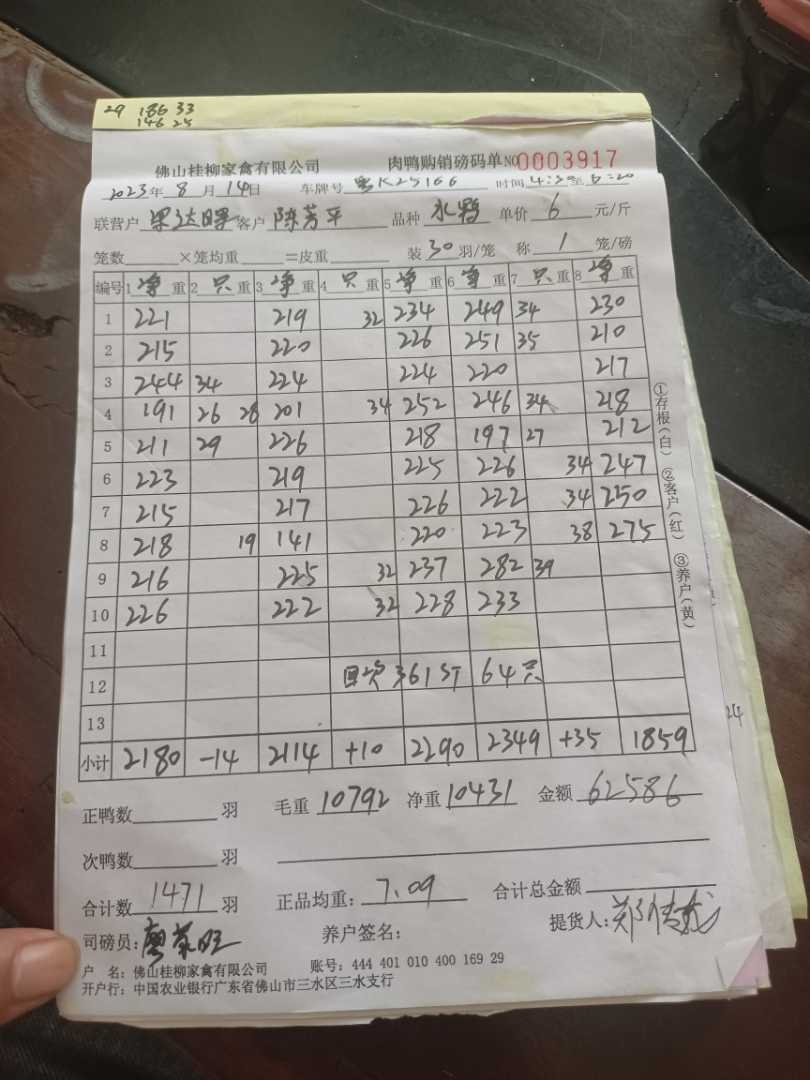 29 186 33
146 25
佛山桂柳家禽有限公司 肉鸭购销磅码单 NO 0003917
2023年 8月 14日 车牌号 粤K25166 时间
联营户 客户 陈芳平 品种 水鸭 单价 6 元/斤
笼数 ×笼均重 =皮重 装 30 羽/笼 称 1 笼/磅
编号 1 净重 2 只重 3 净重 4 只重 5 净重 6 净重 7 只重 8 净重
1 221 219 32 234 249 34 230
2 215 220 226 251 35 210
3 244 34 224 224 220 217
4 191 26 28 201 34 252 246 34 218
5 211 29 226 218 197 27 212
6 223 219 225 226 34 247
7 215 217 226 222 34 250
8 218 19 141 220 223 38 275
9 216 225 32 237 282 39
10 226 222 32 228 233
11
12 回次 361斤 64只
13
小计 2180 -14 2114 +10 2290 2349 +35 1859
正鸭数 羽 毛重 10792 净重 10431 金额 62586
次鸭数 羽
合计数 1471 羽 正品均重: 7.09 合计总金额
司磅员: 养户签名: 提货人:
户 名: 佛山桂柳家禽有限公司 账号: 444 401 010 400 169 29
开户行: 中国农业银行广东省佛山市三水区三水支行
①存根(白) ②客户(红) ③养户(黄)
24